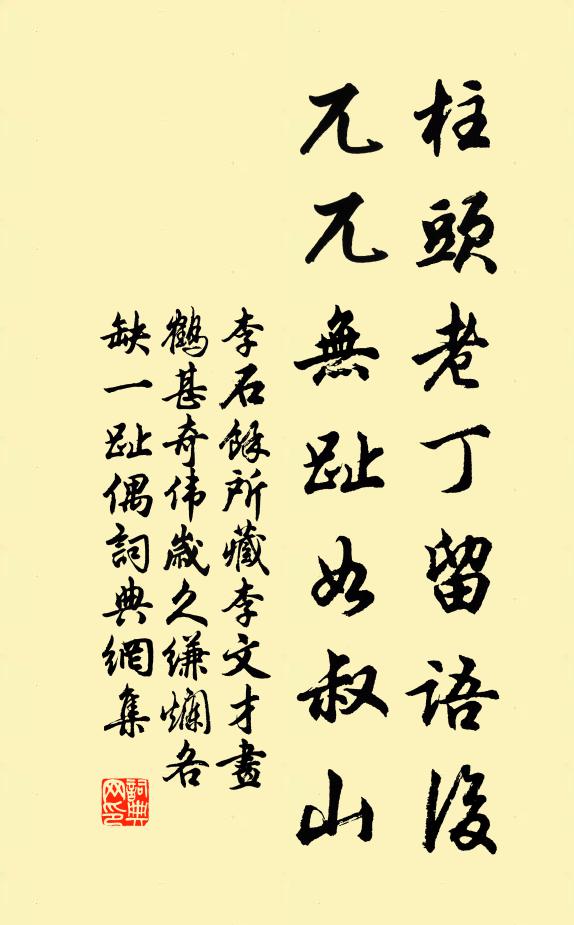 柱頭老丁留語後
兀兀無趾如叔山
李石餘所藏李文才畫
鶴甚奇伟歲久缣爛各
缺一趾偶詞典網集
詞典网印